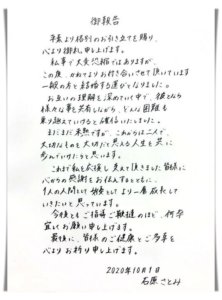 御報告
平素より格別のお引き立てを賜り、
心より御礼申し上げます。
私事で大変恐縮ではありますが、
この度、かねてよりお付き合いさせて頂いています
一般の方と結婚する運びとなりました。
お互いの理解を深めていく中で、彼となら
様々な事を共有しながら、どんな困難も
乗り越えていけると確信いたしました。
まだまだ未熟ですが、これからは二人で、
大切なものを大切に思える人生を共に
歩んでいけたらと思います。
これまで私を応援し支えて頂きました皆様に
心からの感謝をお伝えするとともに、
1人の人間として、俳優としてより一層成長して
いきたいと思っています。
今後ともご指導ご鞭撻のほど、何卒
宜しくお願い申し上げます。
最後に、皆様のご健康とご多幸を
心よりお祈り申し上げます。
2020年10月1日
石原さとみ